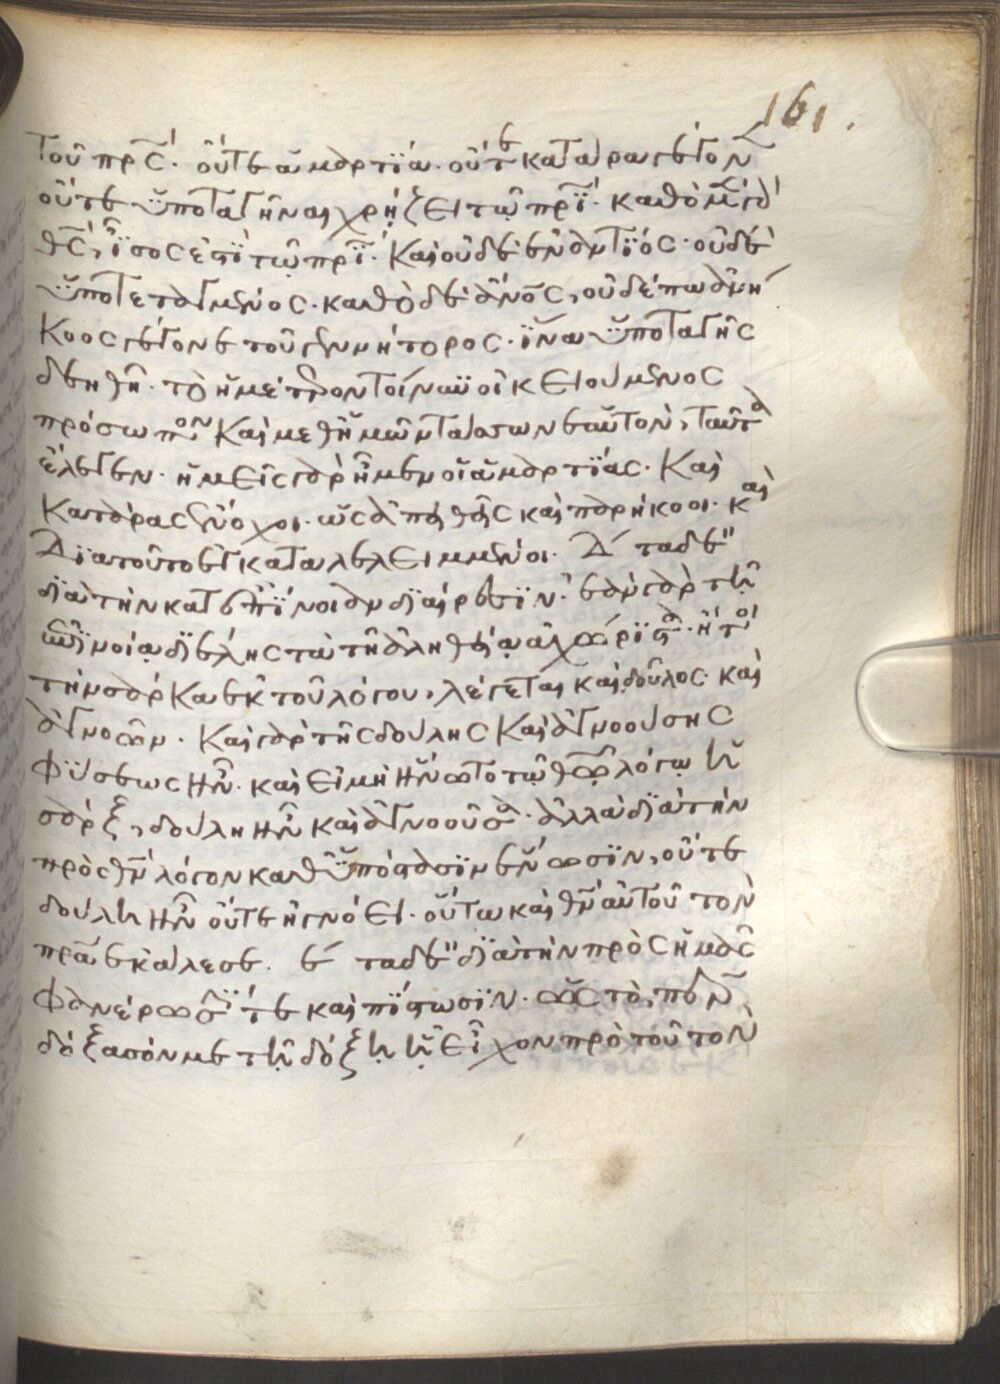 161.
τοῦ πρ̅ς· οὔτε ἁμαρτία· οὔτε κατάρα γέγονεν
οὔτε ὑποταγῆναι χρήζει τῷ πρ̅ι· καθὸ μὲν γὰρ
θ̅ς, ἴσος ἐστὶ τῷ πρ̅ι· καὶ οὐδὲ ἐναντίος· οὐδὲ
ὑποτεταγμένος· καθὸ δὲ ἄν̅ος, οὐδέπω ἀνή
κοος γέγονε τοῦ γεννήτορος· ἵνα ὑποταγῆς
δεηθῇ· τὸ ἡμέτερον τοίνυν οἰκειούμενος
πρόσωπον καὶ μεθ' ἡμῶν τάσσων ἑαυτὸν, ταῦτα
ἔλεγεν· ἡμεῖς γὰρ ἦμεν οἱ ἁμαρτίας· καὶ
κατάρας ἔνοχοι· ὡς ἀπειθεῖς καὶ παρήκοοι· καὶ
διὰ τοῦτο ἐγκαταλελειμμένοι· Δ΄ τὰ δὲ
διὰ τὴν κατ' ἐπίνοιαν διαίρεσιν· ἐὰν γὰρ τῇ
ἐπινοίᾳ διέλῃς τὰ τῇ ἀληθείᾳ ἀχώριστα· ἤτοι
τὴν σάρκα ἐκ τοῦ λόγου, λέγεται καὶ δοῦλος· καὶ
ἀγνοῶν· καὶ γὰρ τῆς δούλης καὶ ἀγνοούσης
φύσεως ἦν· καὶ εἰ μὴ ἥνωτο τῷ θ̅ῷ λόγῳ ἡ
σάρξ, δούλη ἦν καὶ ἀγνοοῦσα· ἀλλὰ διὰ τὴν
πρὸς θ̅ν λόγον καθ' ὑπόστασιν ἕνωσιν, οὔτε
δούλη ἦν οὔτε ἠγνόει· οὕτω καὶ θ̅ν αὐτοῦ τὸν
πρ̅α ἐκάλεσε· ε΄ τὰ δὲ διὰ τὴν πρὸς ἡμᾶς
φανέρωσίν τε καὶ πίστωσιν· ὡς τὸ, π̅ερ
δόξασόν με τῇ δόξῃ ᾗ εἶχον πρὸ τοῦ τὸν